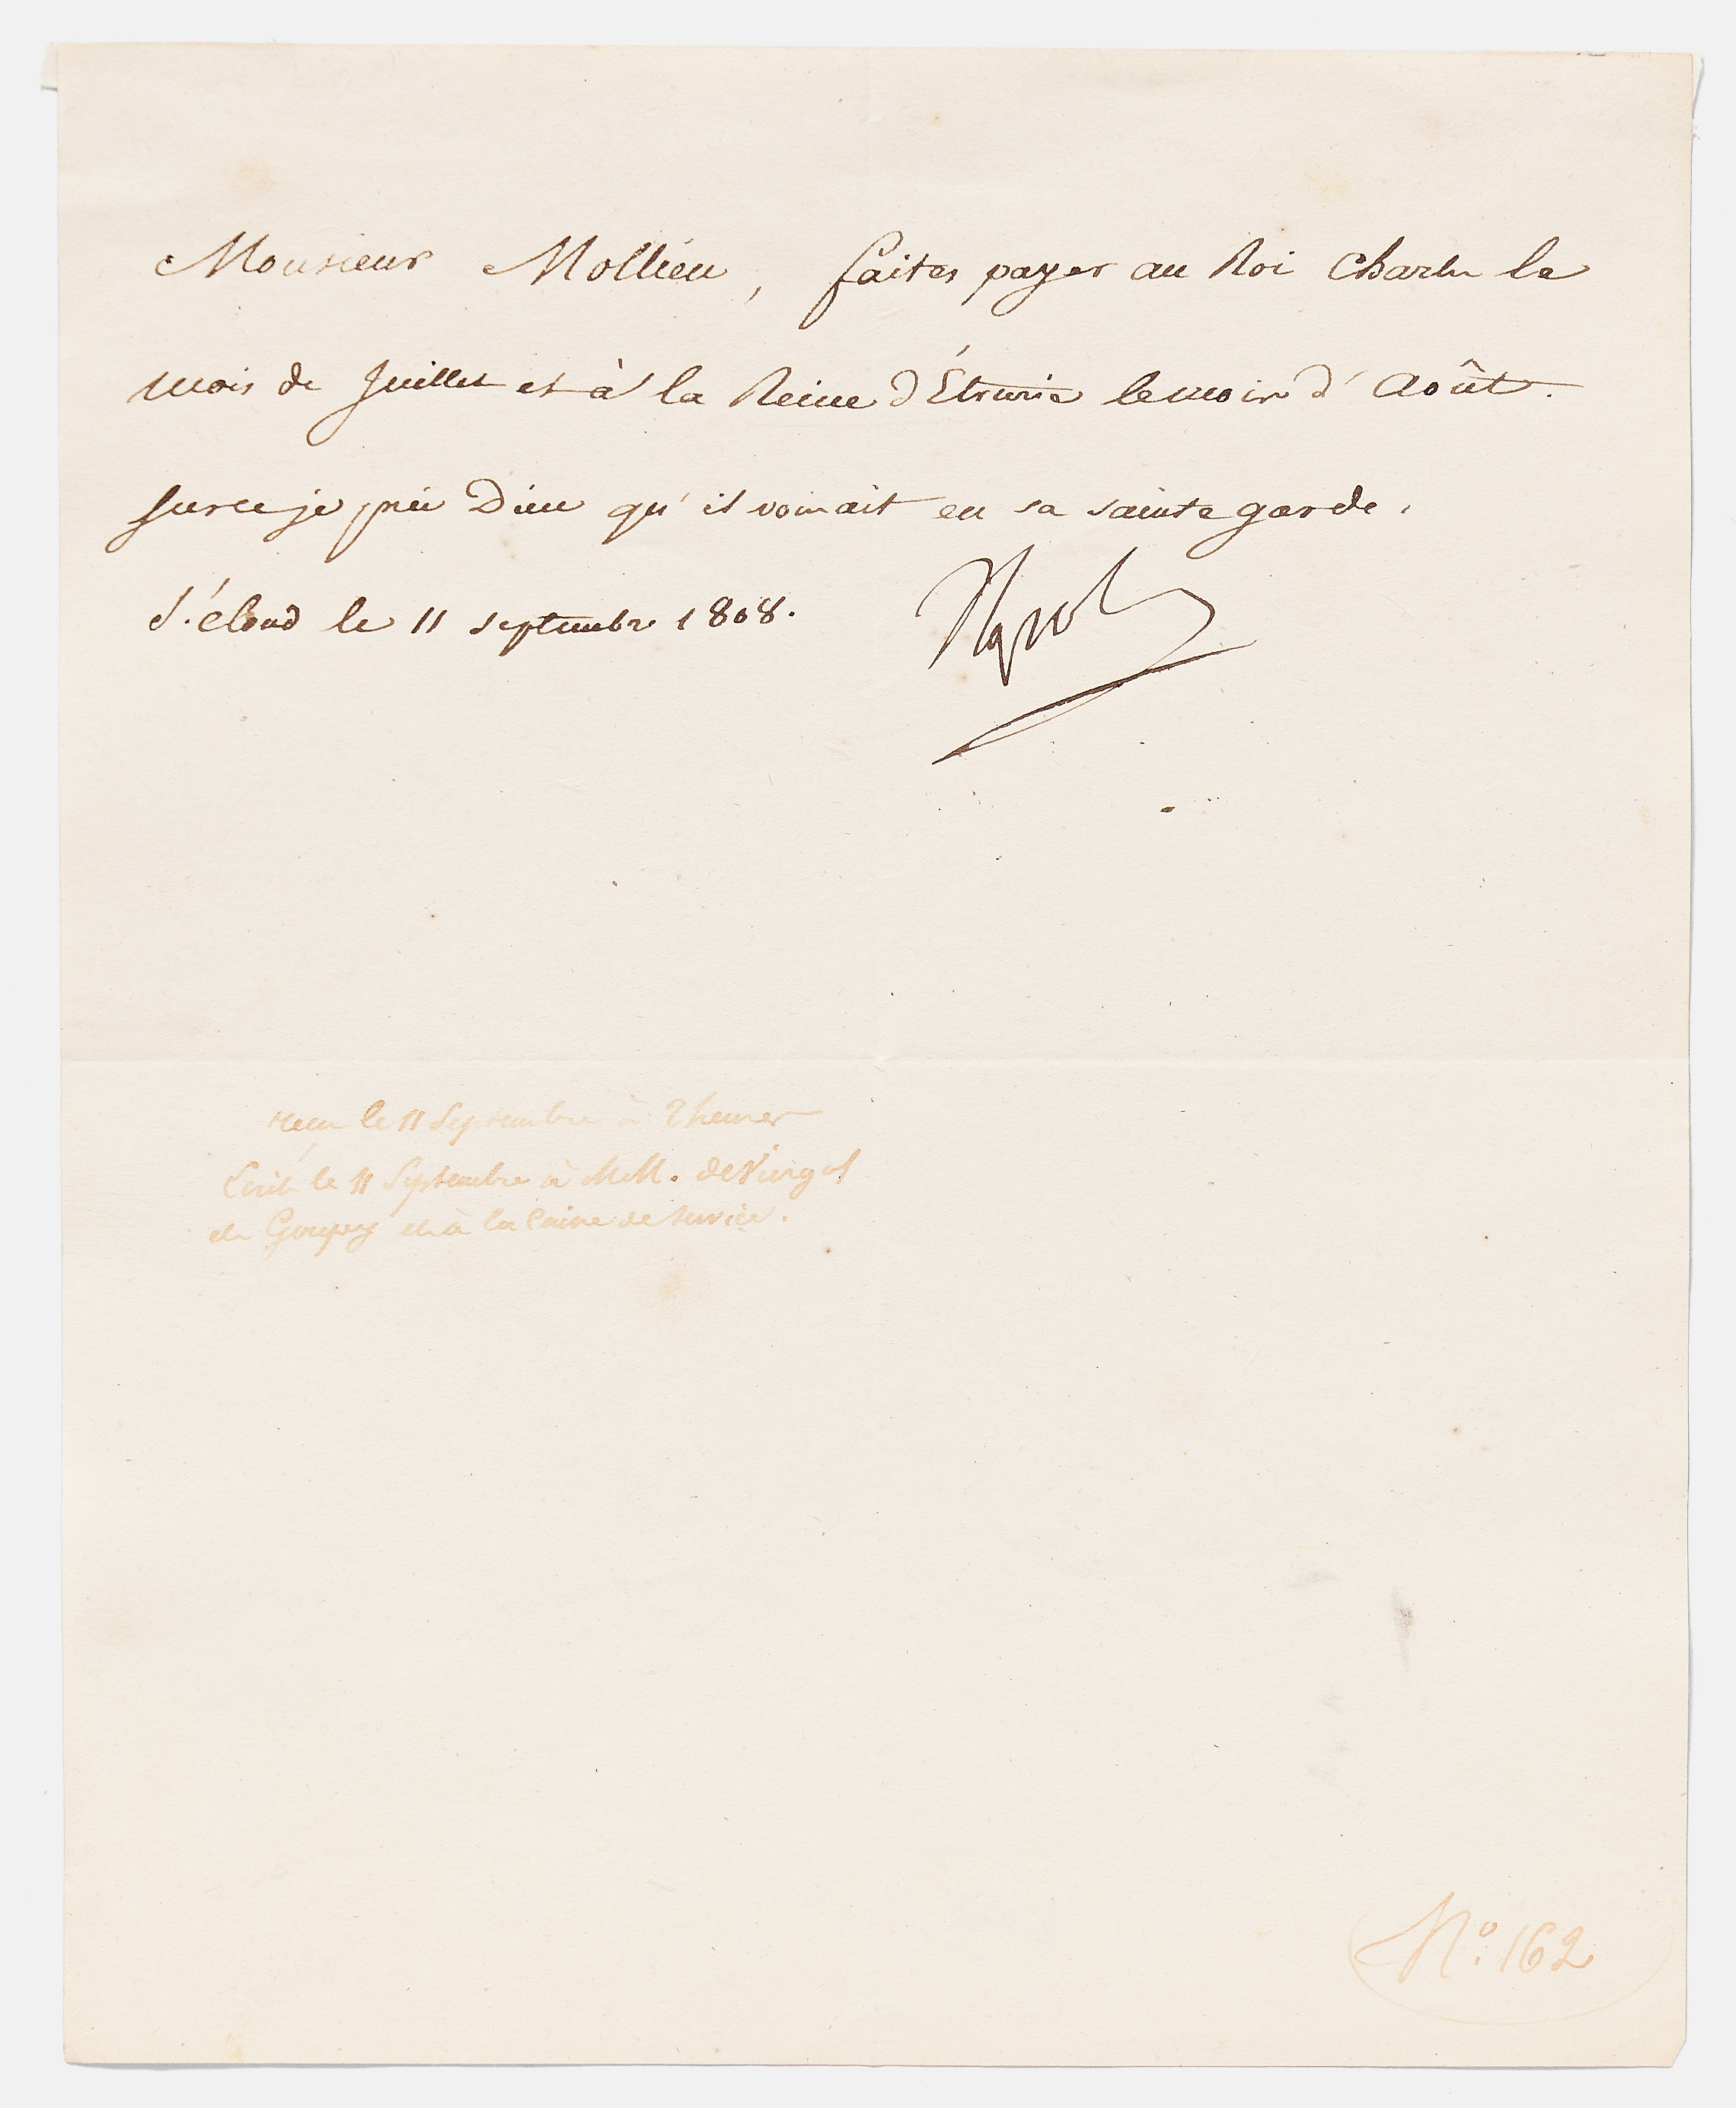 Monsieur Mollien, faites payer au Roi Charles le
mois de Juillet et à la Reine d'Étrurie le mois d'Août.
Sur ce je prie Dieu qu'il vous ait en sa sainte garde.
St. Cloud le 11 septembre 1808.
Napol
reçu le 11 Septembre à 2 heures
Écrit le 11 Septembre à MM. de
et à la Caisse de service.
No. 162